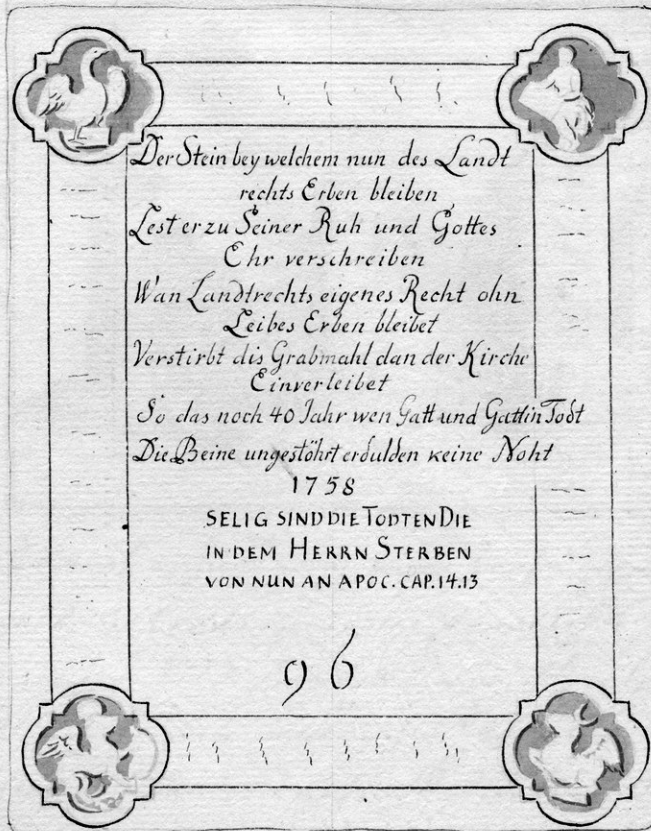 Der Stein bey welchem nun des Landt
rechts Erben bleiben
Lest er zu Seiner Ruh und Gottes
Ehr verschreiben
Wan Landtrechts eigenes Recht ohn
Leibes Erben bleibet
Verstirbt dis Grabmahl dan der Kirche
Einverleibet
So das noch 40 Jahr wen Gatt und Gattin Todt
Die Beine ungestöhrt erdulden keine Noht
1758
SELIG SIND DIE TODTEN DIE
IN DEM HERRN STERBEN
VON NUN AN APOC. CAP. 14.13
96